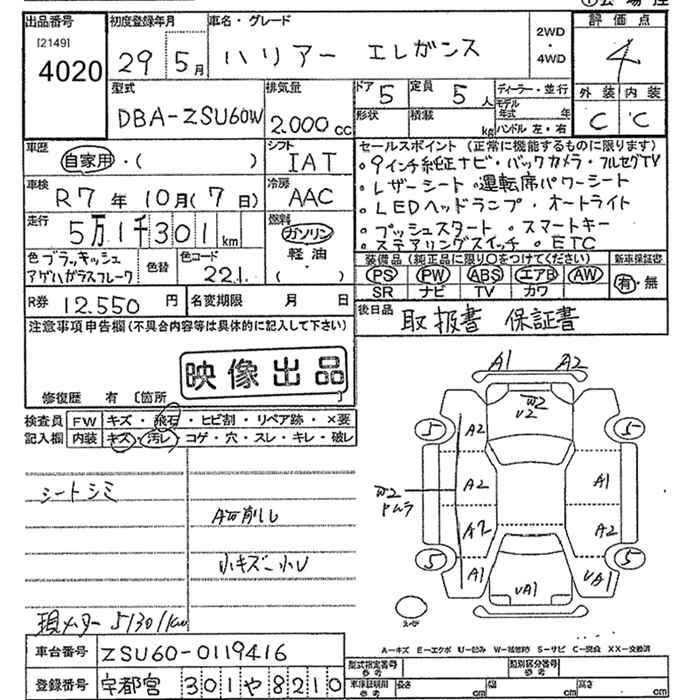 出品番号
[2149]
4020
初度登録年月
29 5月
車名・グレード
ハリアー エレガンス
2WD
・
4WD
評価点
4
外装 内装
C C
型式
DBA-ZSU60W
排気量
2.000 cc
ドア 5
定員 5人
形状
積載 kg
ディーラー・並行
モデル年式 年
ハンドル 左・右
車歴
自家用・( )
シフト
IAT
車検
R7年10月(7日)
冷房
AAC
走行
5万1千301km
燃料
ガソリン
軽油
( ・ )
色 ブラッキッシュ
アゲハガラスフレーク
色替
色コード
221
R券 12.550 円
名変期限 月 日
セールスポイント (正常に機能するものに限ります)
。9インチ純正ナビ・バックカメラ・フルセグTV
。レザーシート 。運転席パワーシート
。LEDヘッドランプ・オートライト
。プッシュスタート 。スマートキー
。ステアリングスイッチ 。ETC
装備品 (純正品に限り○をつけてください)
PS PW ABS エアB AW
SR ナビ TV カワ
新車保証書
有・無
後日品 取扱書 保証書
注意事項申告欄(不具合内容等は具体的に記入して下さい)
映像出品
修復歴 有 [箇所 ]
検査員記入欄
FW キズ・飛石・ヒビ割・リペア跡・×要
内装 キズ・汚レ・コゲ・穴・スレ・キレ・破レ
シートシミ
小キズ小U
現メーター 51301km
A1 A2
W2
U2
5 5
A2
A2 A1
W2
A2 A2
A1 UA1
UA1
5 5
A-キズ E-エクボ U-凹み W-補修跡 S-サビ C-腐食 XX-交換済
車台番号 ZSU60-0119416
登録番号 宇都宮 301や8210
型式指定番号
参考
類別区分番号
参考
長さ cm
幅 cm
高さ cm